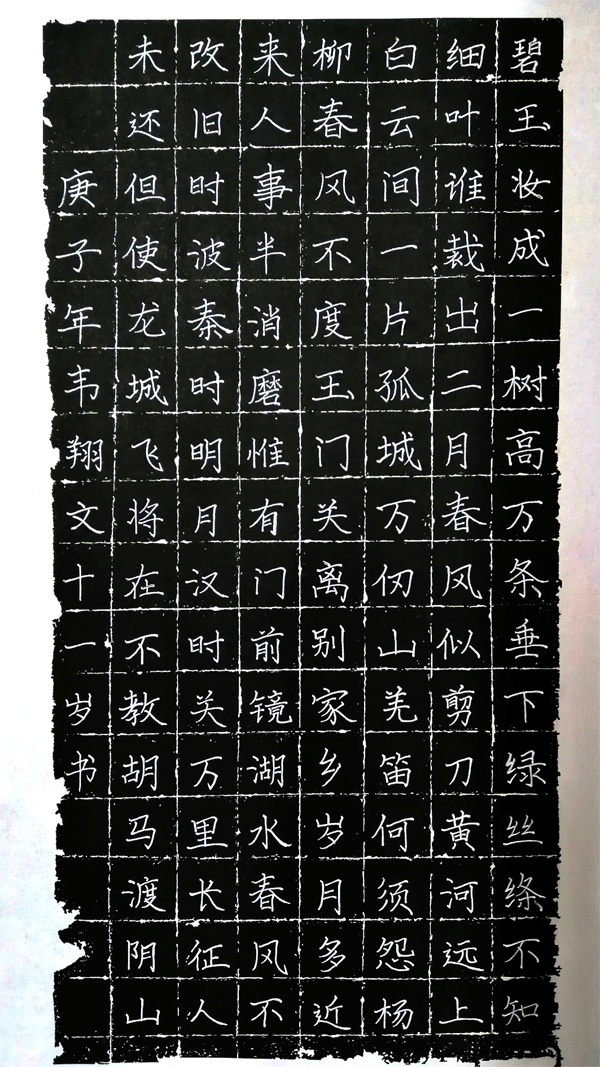 碧玉妆成一树高万条垂下绿丝绦不知
细叶谁裁出二月春风似剪刀黄河远上
白云间一片孤城万仞山羌笛何须怨杨
柳春风不度玉门关离别家乡岁月多近
来人事半消磨惟有门前镜湖水春风不
改旧时波秦时明月汉时关万里长征人
未还但使龙城飞将在不教胡马渡阴山
庚子年韦翔文十一岁书